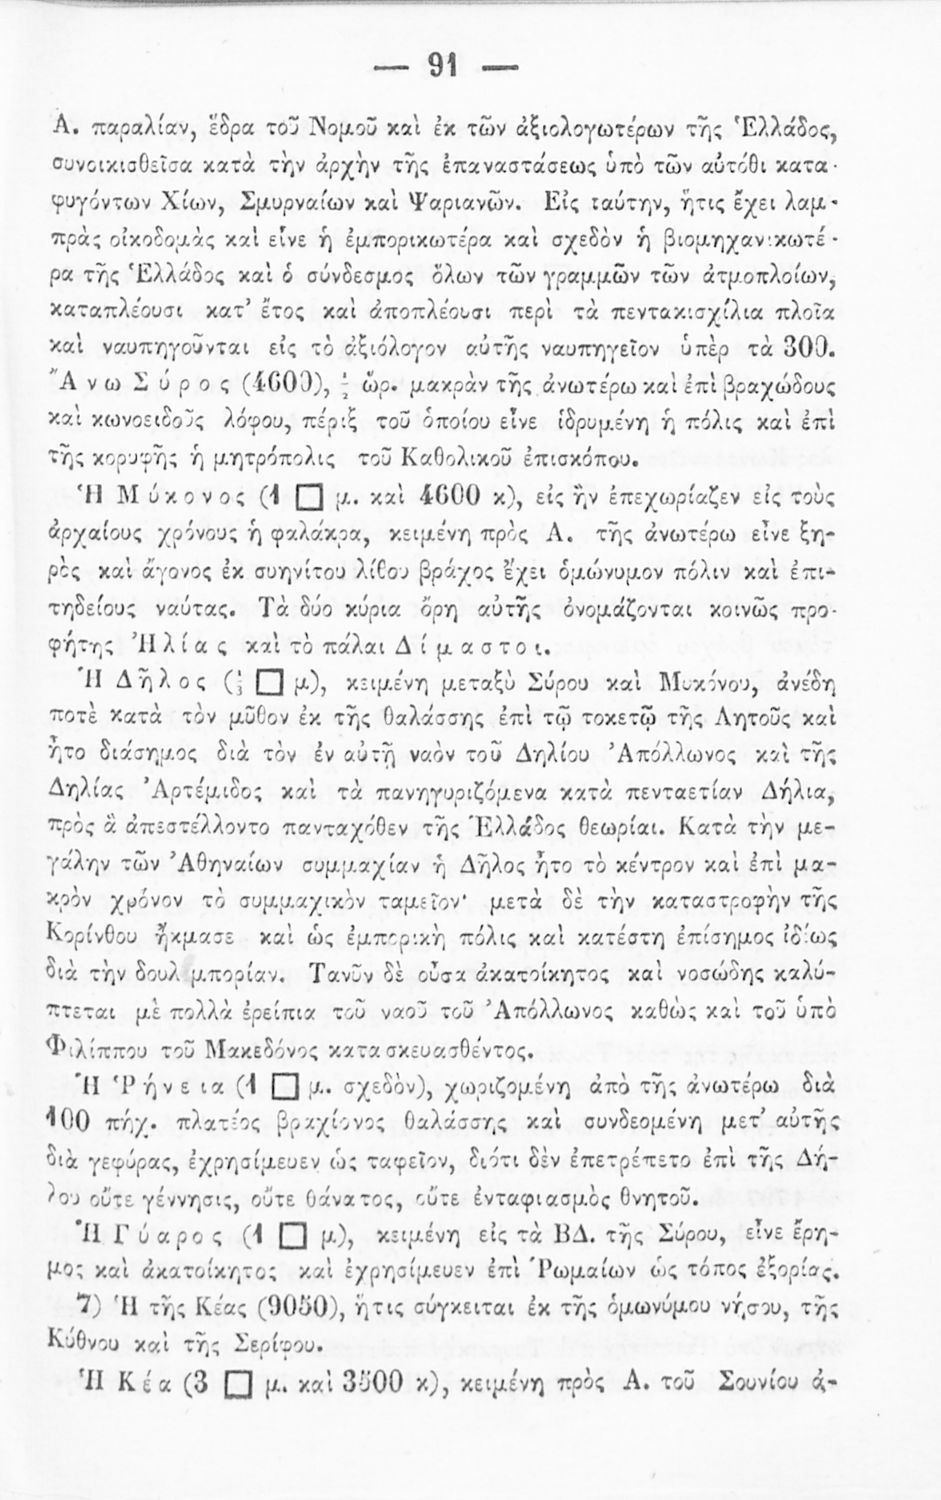 — 91 —
Α. παραλίαν, ἕδρα τοῦ Νομοῦ καὶ ἐκ τῶν ἀξιολογωτέρων τῆς Ἑλλάδος,
συνοικισθεῖσα κατὰ τὴν ἀρχὴν τῆς ἐπαναστάσεως ὑπὸ τῶν αὐτόθι κατα-
φυγόντων Χίων, Σμυρναίων καὶ Ψαριανῶν. Εἰς ταύτην, ἥτις ἔχει λαμ-
πρὰς οἰκοδομὰς καὶ εἶνε ἡ ἐμπορικωτέρα καὶ σχεδὸν ἡ βιομηχανικωτέ-
ρα τῆς Ἑλλάδος καὶ ὁ σύνδεσμος ὅλων τῶν γραμμῶν τῶν ἀτμοπλοίων,
καταπλέουσι κατ' ἔτος καὶ ἀποπλέουσι περὶ τὰ πεντακισχίλια πλοῖα
καὶ ναυπηγοῦνται εἰς τὸ ἀξιόλογον αὐτῆς ναυπηγεῖον ὑπὲρ τὰ 300.
Ἄνω Σύρος (4600), ὡρ. μακρὰν τῆς ἀνωτέρω καὶ ἐπὶ βραχώδους
καὶ κωνοειδοῦς λόφου, πέριξ τοῦ ὁποίου εἶνε ἱδρυμένη ἡ πόλις καὶ ἐπὶ
τῆς κορυφῆς ἡ μητρόπολις τοῦ Καθολικοῦ ἐπισκόπου.
Ἡ Μύκονος (1 □ μ. καὶ 4600 κ), εἰς ἣν ἐπεχωρίαζεν εἰς τοὺς
ἀρχαίους χρόνους ἡ φαλάκρα, κειμένη πρὸς Α. τῆς ἀνωτέρω εἶνε ξη-
ρὸς καὶ ἄγονος ἐκ συηνίτου λίθου βράχος ἔχει ὁμώνυμον πόλιν καὶ ἐπι-
τηδείους ναύτας. Τὰ δύο κύρια ὄρη αὐτῆς ὀνομάζονται κοινῶς προ-
φήτης Ἠλίας καὶ τὸ πάλαι Δίμαστοι.
Ἡ Δῆλος (□ μ), κειμένη μεταξὺ Σύρου καὶ Μυκόνου, ἀνέδη
ποτὲ κατὰ τὸν μῦθον ἐκ τῆς θαλάσσης ἐπὶ τῷ τοκετῷ τῆς Λητοῦς καὶ
ἦτο διάσημος διὰ τὸν ἐν αὐτῇ ναὸν τοῦ Δηλίου Ἀπόλλωνος καὶ τῆς
Δηλίας Ἀρτέμιδος καὶ τὰ πανηγυριζόμενα κατὰ πενταετίαν Δήλια,
πρὸς ἃ ἀπεστέλλοντο πανταχόθεν τῆς Ἑλλάδος θεωρίαι. Κατὰ τὴν με-
γάλην τῶν Ἀθηναίων συμμαχίαν ἡ Δῆλος ἦτο τὸ κέντρον καὶ ἐπὶ μα-
κρὸν χρόνον τὸ συμμαχικὸν ταμεῖον· μετὰ δὲ τὴν καταστροφὴν τῆς
Κορίνθου ἤκμασε καὶ ὡς ἐμπορικὴ πόλις καὶ κατέστη ἐπίσημος ἰδίως
διὰ τὴν δουλεμπορίαν. Τανῦν δὲ οὖσα ἀκατοίκητος καὶ νοσώδης καλύ-
πτεται μὲ πολλὰ ἐρείπια τοῦ ναοῦ τοῦ Ἀπόλλωνος καθὼς καὶ τοῦ ὑπὸ
Φιλίππου τοῦ Μακεδόνος κατασκευασθέντος.
Ἡ Ῥήνεια (1 □ μ. σχεδὸν), χωριζομένη ἀπὸ τῆς ἀνωτέρω διὰ
100 πήχ. πλατέος βραχίονος θαλάσσης καὶ συνδεομένη μετ' αὐτῆς
διὰ γεφύρας, ἐχρησίμευεν ὡς ταφεῖον, διότι δὲν ἐπετρέπετο ἐπὶ τῆς Δή-
λου οὔτε γέννησις, οὔτε θάνατος, οὔτε ἐνταφιασμὸς θνητοῦ.
Ἡ Γύαρος (1 □ μ), κειμένη εἰς τὰ ΒΔ. τῆς Σύρου, εἶνε ἔρη-
μος καὶ ἀκατοίκητος καὶ ἐχρησίμευεν ἐπὶ Ῥωμαίων ὡς τόπος ἐξορίας.
7) Ἡ τῆς Κέας (9050), ἥτις σύγκειται ἐκ τῆς ὁμωνύμου νήσου, τῆς
Κύθνου καὶ τῆς Σερίφου.
Ἡ Κέα (3 □ μ. καὶ 3500 κ), κειμένη πρὸς Α. τοῦ Σουνίου ἀ-